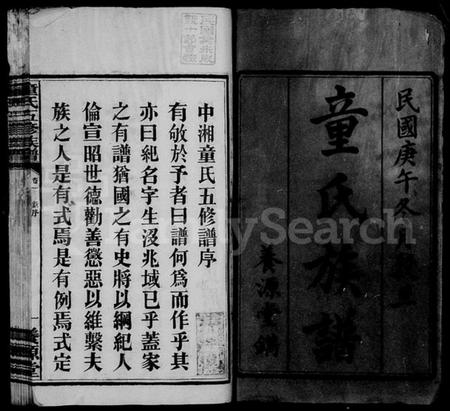 民國庚午冬
童氏族譜
養源堂鐫
中湘童氏五修譜序
有敂於予者曰譜何爲而作乎其
亦曰紀名字生沒兆域已乎蓋家
之有譜猶國之有史將以綱紀人
倫宣昭世德勸善懲惡以維繫夫
族之人是有式焉是有例焉式定
童氏五修族譜
養源堂
Search